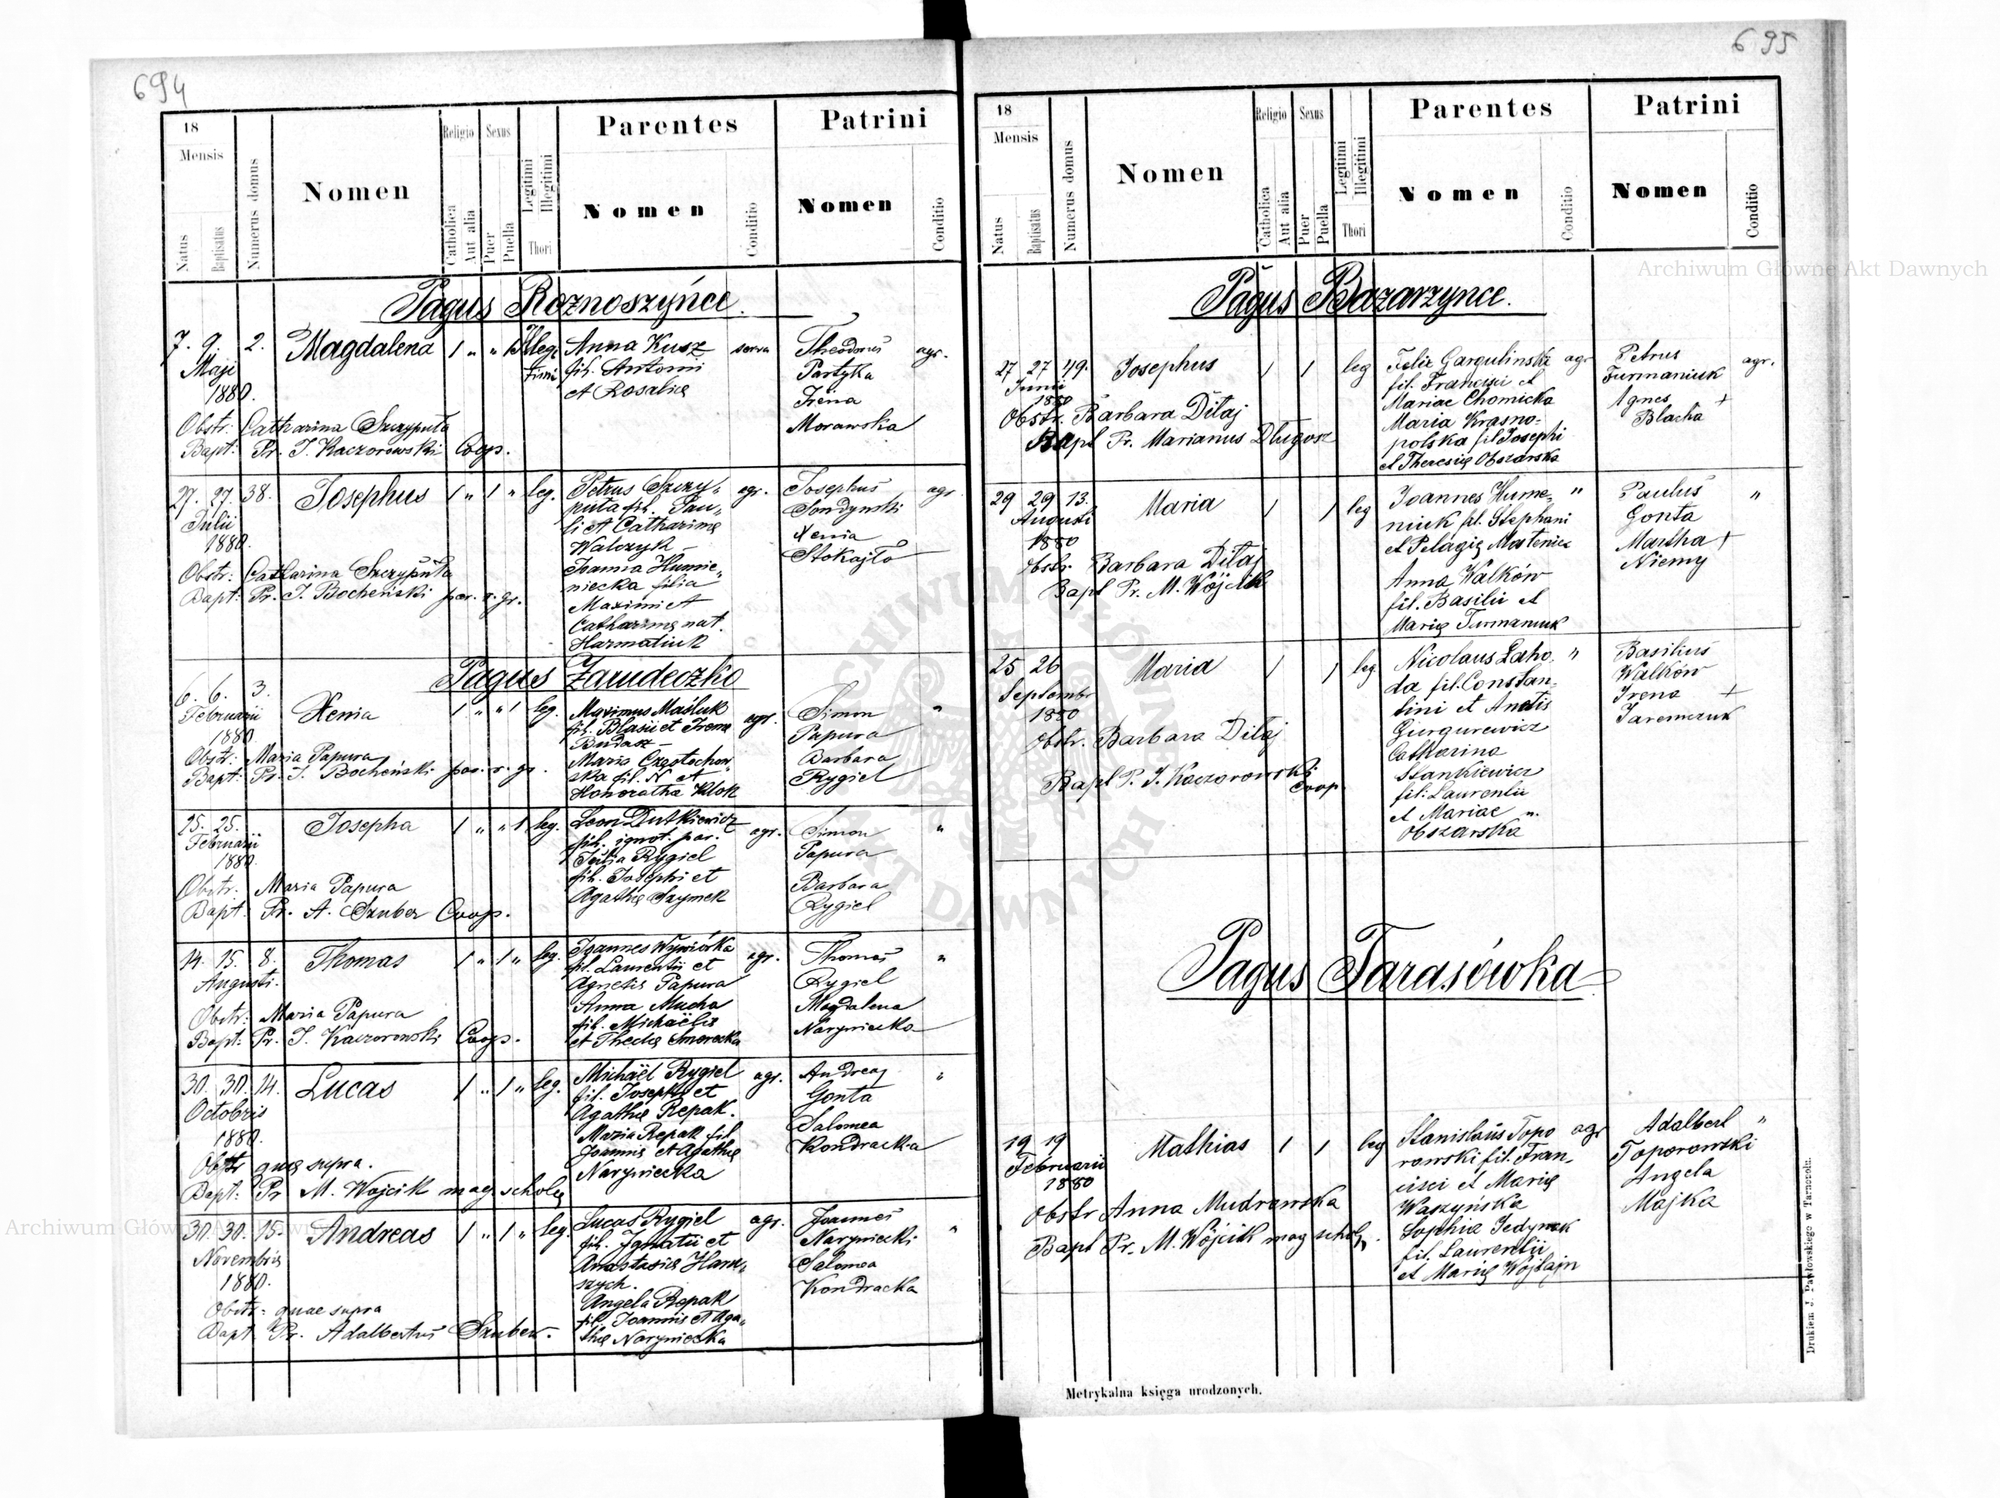 694
18
Mensis
Natus
Baptisatus
Numerus domus
Nomen
Religio
Catholica
Aut alia
Sexus
Puer
Puella
Legitimi
Illegitimi
Thori
Parentes
Nomen
Conditio
Patrini
Nomen
Conditio
Pagus Roznoszyńce.
7. 9. 2. Magdalena 1 " " 1 Illeg. Anna Kusz serva Theodorus agr.
Maji timi fil. Antonii Partyka
1880. et Rosalię Irena
Obstr: Catharina Szczyputa Morawska
Bapt: Pr. J. Kaczorowski Coop.
27. 27. 38. Josephus 1 " 1 " leg. Petrus Szczy- agr. Josephus agr.
Julii puta fil. Pau- Sondynski
1880. li et Catharinę Xenia
Walczyk - Stokajło
Obstr: Catharina Szczyputa Humie-
Bapt: Pr. J. Bocheński par. r. gr. niecka filia
Maximi et
Catharinę nat.
Harmatiuk
Pagus Zarudeczko
6. 6. 3. Xenia 1 " " 1 leg. Maximus Maśluk agr. Simon "
Februarii fil. Blasii et Irena Papura
1880 Budasz - Barbara
Obstr: Maria Papura Maria Częstochow- Rygiel
Bapt: Pr. J. Bocheński par. r. gr. ska fil. N et
Honoratha Klok
25. 25. Josepha 1 " " 1 leg. Leon Dutkiewicz agr. Simon "
Februarii fil. ignot. par. Papura
1880. Julia Rygiel Barbara
Obstr. Maria Papura fil. Josephi et Rygiel
Bapt. Pr. A. Szuber Coop. Agathię Szymek
14. 15. 8. Thomas 1 " 1 " leg. Joannes Wywiórka agr. Thomas "
Augusti. fil. Laurentii et Rygiel
Obstr: Maria Papura Agnetis Papura Magdalena
Bapt: Pr. J. Kaczorowski Coop. Anna Mucha Naryniecka
fil. Michaëlis
et Theclę Smorecka
30. 30. 14. Lucas 1 " 1 " leg. Michaël Rygiel agr. Andreas "
Octobris fil. Josephi et Gonta
1880. Agathię Repak. Salomea
Obstr quę supra. Maria Repak fil. Kondracka
Bapt: Pr M. Wojcik mag scholę Joannis et Agathię
Naryniecka
30. 30. 15. Andreas 1 " 1 " leg. Lucas Rygiel agr. Joannes "
Novembris fil. Ignatii et Naryniecki
1880. Anastasię Salomea
Obstr: quae supra szych. Kondracka
Bapt Pr. Adalbertus Szuber. Angela Repak
fil. Joannis et Aga-
thię Naryniecka
695
18
Mensis
Natus
Baptisatus
Numerus domus
Nomen
Religio
Catholica
Aut alia
Sexus
Puer
Puella
Legitimi
Illegitimi
Thori
Parentes
Nomen
Conditio
Patrini
Nomen
Conditio
Pagus Bazarzynce.
27 27 49. Josephus 1 1 leg Felix Gargulinski agr Petrus agr.
Junii fil. Francisci et Furmaniuk
1880 Mariae Chomicka Agnes +
Obstr. Barbara Diłaj Maria Krasno- Blacha
Bapt Pr. Marianus Długosz polska fil Josephi
et Theresię Obszarska
29 29 13. Maria 1 1 leg Joannes Hume- " Paulus "
Augusti niuk fil. Stephani Gonta
1880 et Pelagię Martha +
Obstr. Barbara Diłaj Anna Walków Niemy
Bapt Pr. M. Wójcik fil. Basilii et
Marię Furmaniuk
25 26 Maria 1 1 leg Nicolaus Laho- " Basilius
Septembr da fil. Constan- Walków
1880 tini et Irena +
Obstr. Barbara Diłaj Giurgurewicz Jaremczuk
Bapt P. J. Kaczorowski Coop Catharina
Stankiewicz
fil. Laurentii
et Mariae
Obszarska
Pagus Tarasówka
19 19 Mathias 1 1 leg Stanislaus Topo agr Adalbert "
Februarii rowski fil. Fran- Toporowski
1880 cisci et Marię Angela
Obstr Anna Mudrawska Waszyńska Majka
Bapt Pr. M. Wójcik mag scholę. Sophia Jedynak
fil. Laurentii
et Marię Wojtajn
Metrykalna księga urodzonych.
Drukiem J. Pawłowskiego w Tarnopolu.
Archiwum Główne Akt Dawnych
Archiwum Główne Akt Dawnych
ARCHIWUM GŁÓWNE AKT DAWNYCH